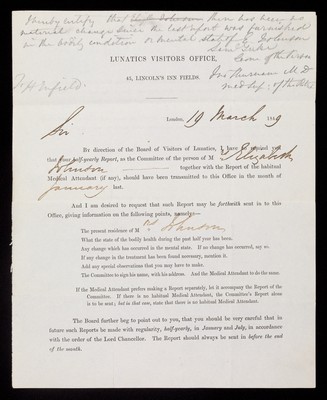 I hereby certify that there has been no
material change since the last report was furnished
in the bodily condition or mental state of E Johnson
Saml Tuke
Com of the Person
Jno Thurnam M D
Med
LUNATICS VISITORS OFFICE,
45, LINCOLN'S INN FIELDS.
London, 19 March
Sir
By direction of the Board of Visitors of Lunatics, I have to remind you
that your half-yearly Report, as the Committee of the person of M rs Elizabeth
Johnson together with the Report of the habitual
Medical Attendant (if any), should have been transmitted to this Office in the month of
January last.
And I am desired to request that such Report may be forthwith sent in to this
Office, giving information on the following points, namely—
The present residence of M rs Johnson
What the state of the bodily health during the past half year has been.
Any change which has occurred in the mental state. If no change has occurred, say so.
If any change in the treatment has been found necessary, mention it.
Add any special observations that you may have to make.
The Committee to sign his name, with his address. And the Medical Attendant to do the same.
If the Medical Attendant prefers making a Report separately, let it accompany the Report of the
Committee. If there is no habitual Medical Attendant, the Committee's Report alone
is to be sent; but in that case, state that there is no habitual Medical Attendant.
The Board further beg to point out to you, that you should be very careful that in
future such Reports be made with regularity, half-yearly, in January and July, in accordance
with the order of the Lord Chancellor. The Report should always be sent in before the end
of the month.